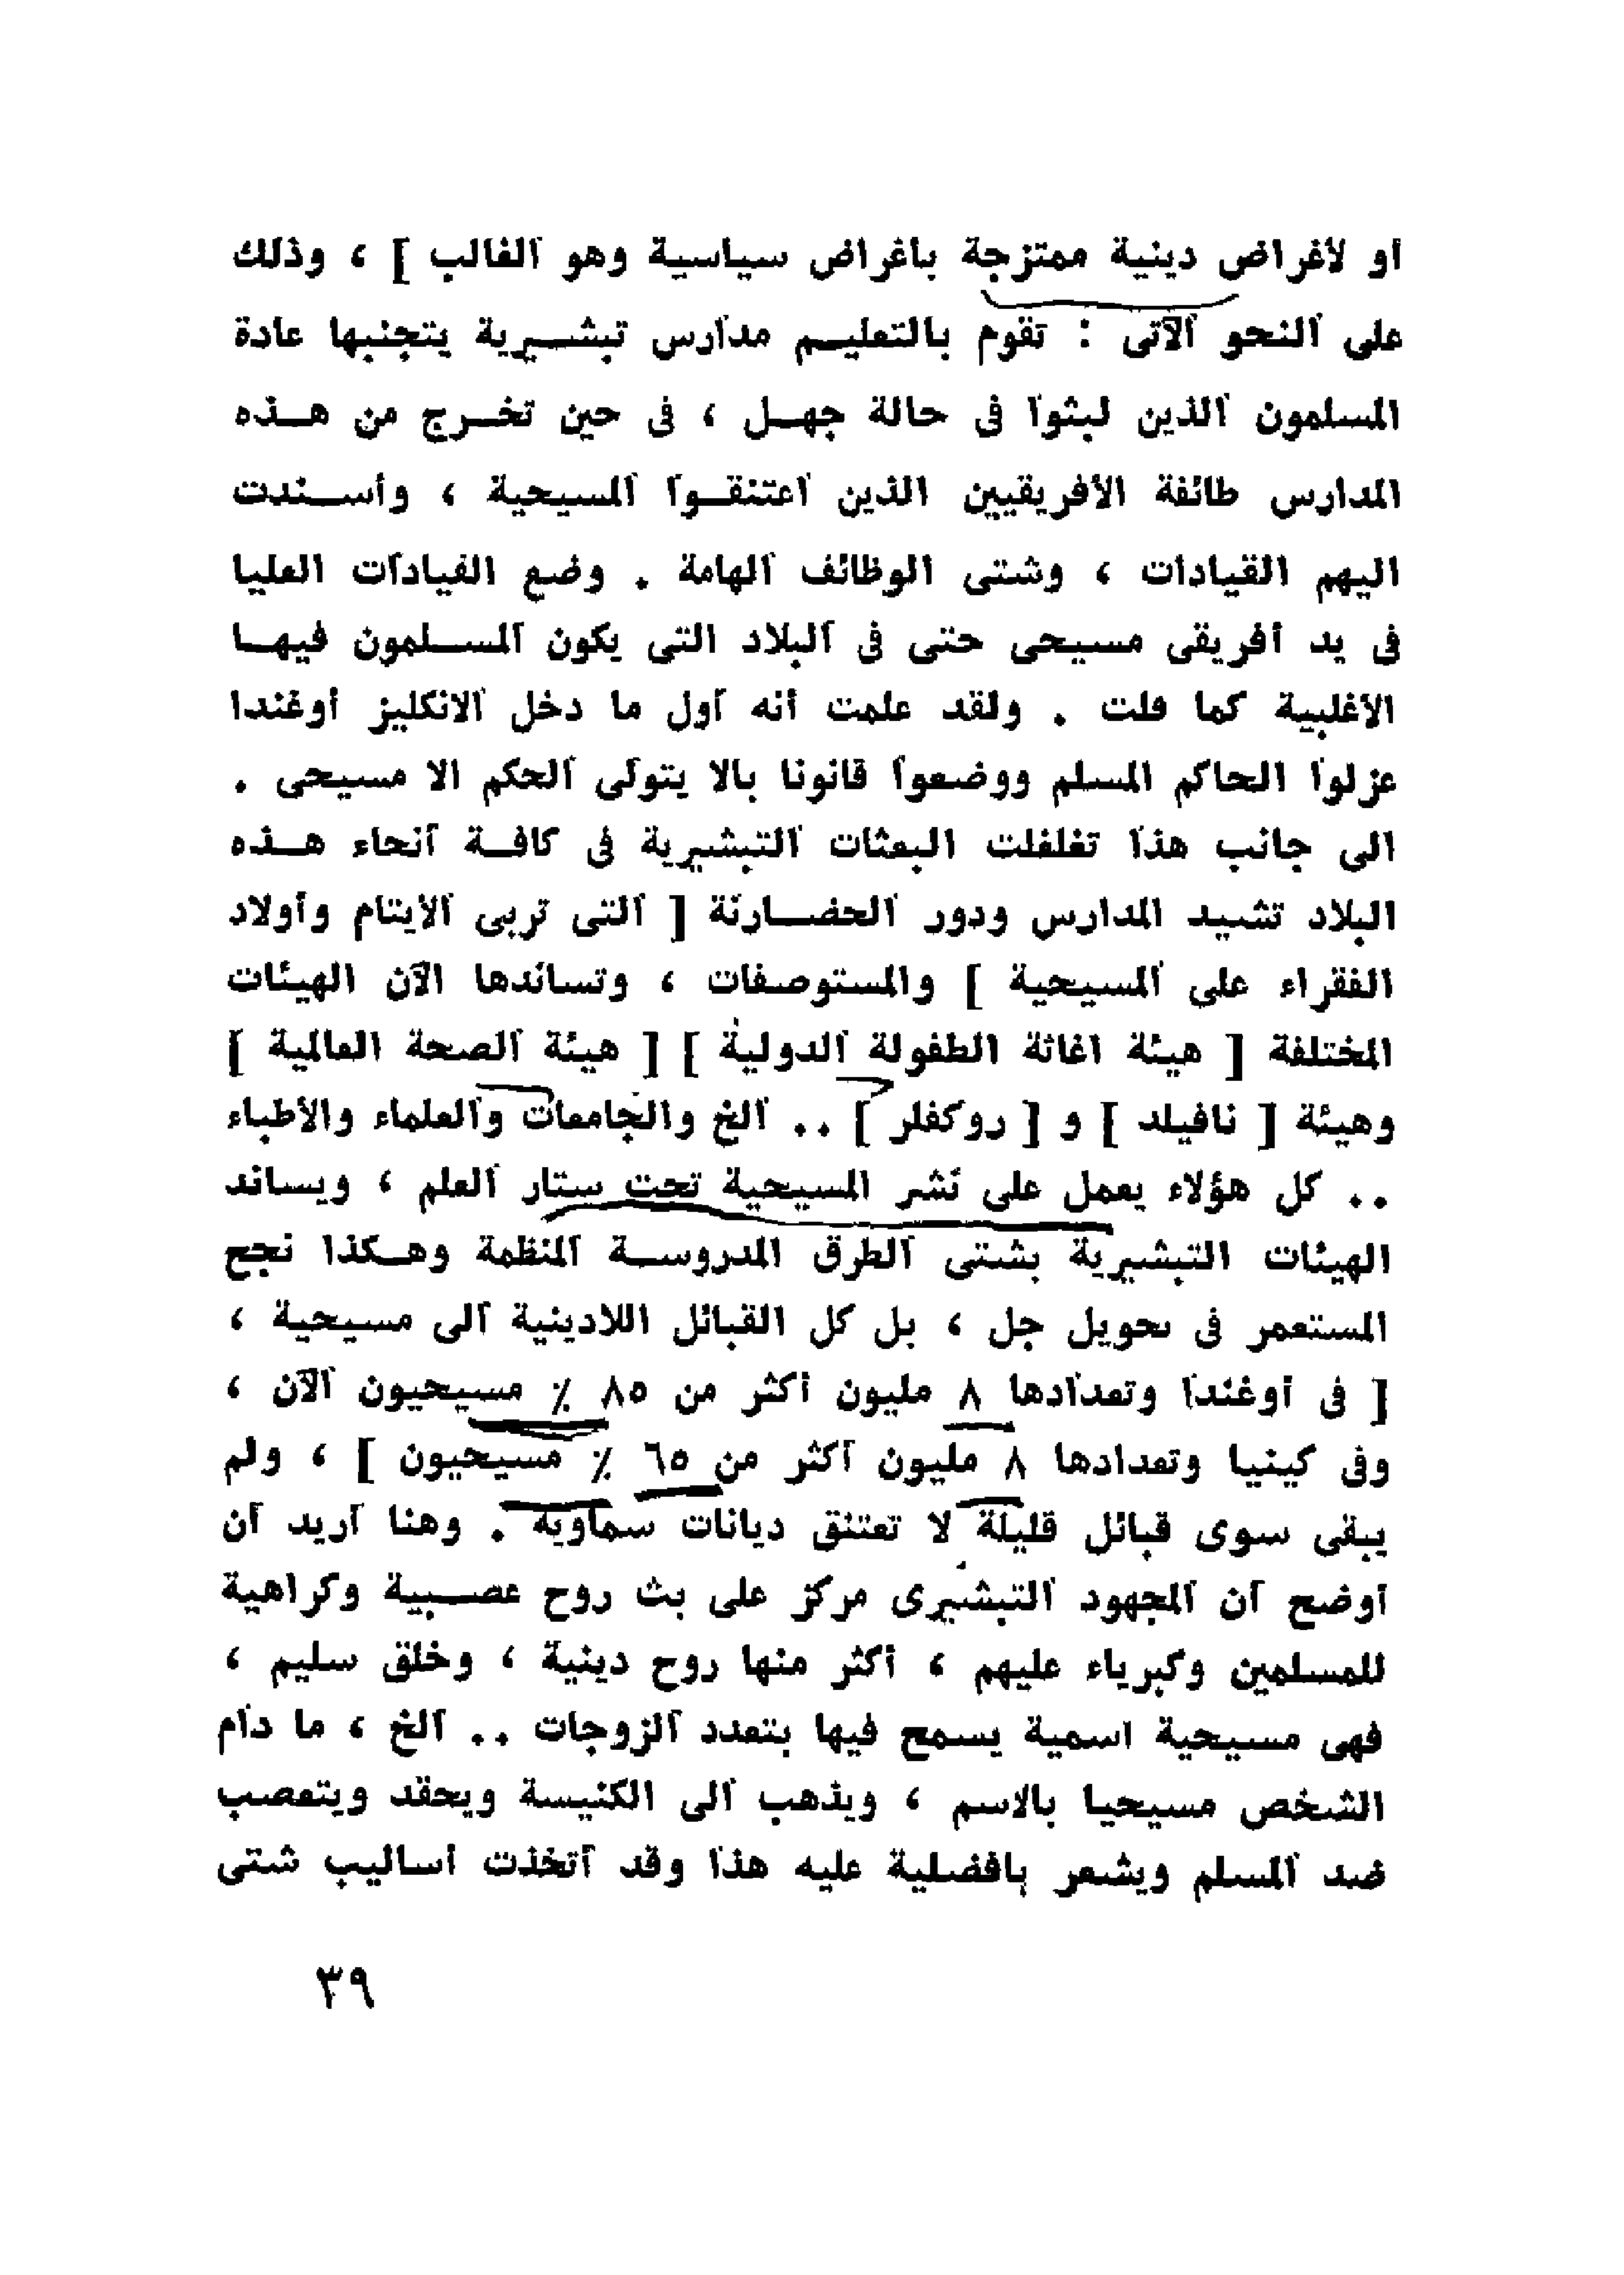 أو لأغراض دينية ممتزجة بأغراض سياسية وهو الغالب ] ، وذلك
على النحو الآتى : تقوم بالتعليم مدارس تبشيرية يتجنبها عادة
المسلمون الذين لبثوا فى حالة جهل ، فى حين تخرج من هذه
المدارس طائفة الأفريقيين الذين اعتنقوا المسيحية ، وأسندت
اليهم القيادات ، وشتى الوظائف الهامة . وضع القيادات العليا
فى يد أفريقى مسيحى حتى فى البلاد التى يكون المسلمون فيها
الأغلبية كما قلت . ولقد علمت أنه أول ما دخل الانكليز أوغندا
عزلوا الحاكم المسلم ووضعوا قانونا بألا يتولى الحكم الا مسيحى .
الى جانب هذا تغلغلت البعثات التبشيرية فى كافة أنحاء هذه
البلاد تشيد المدارس ودور الحضارنة [ التى تربى الأيتام وأولاد
الفقراء على المسيحية ] والمستوصفات ، وتساندها الآن الهيئات
المختلفة [ هيئة اغاثة الطفولة الدولية ] [ هيئة الصحة العالمية ]
وهيئة [ نافيلد ] و [ روكفلر ] .. الخ والجامعات والعلماء والأطباء
.. كل هؤلاء يعمل على نشر المسيحية تحت ستار العلم ، ويساند
الهيئات التبشيرية بشتى الطرق المدروسة المنظمة وهكذا نجح
المستعمر فى تحويل جل ، بل كل القبائل اللادينية الى مسيحية ،
[ فى أوغندا وتعدادها ٨ مليون أكثر من ٨٥ ٪ مسيحيون الآن ،
وفى كينيا وتعدادها ٨ مليون أكثر من ٦٥ ٪ مسيحيون ] ، ولم
يبقى سوى قبائل قليلة لا تعتنق ديانات سماوية . وهنا أريد أن
أوضح أن المجهود التبشيرى مركز على بث روح عصبية وكراهية
للمسلمين وكبرياء عليهم ، أكثر منها روح دينية ، وخلق سليم ،
فهى مسيحية اسمية يسمح فيها بتعدد الزوجات .. الخ ، ما دام
الشخص مسيحيا بالاسم ، ويذهب الى الكنيسة ويحقد ويتعصب
ضد المسلم ويشعر بأفضلية عليه هذا وقد اتخذت أساليب شتى
٣٩